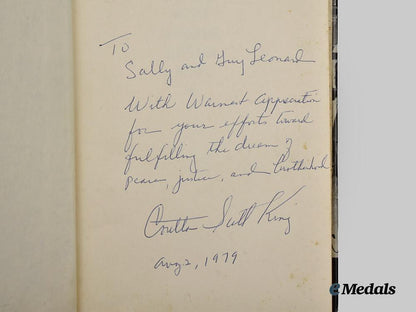 To
Sally and Guy Leonard
With Warmest Appreciation
for your efforts toward
fulfilling the dream of
peace, justice, and brotherhood
Coretta Scott King
Aug 2, 1979
eMedals